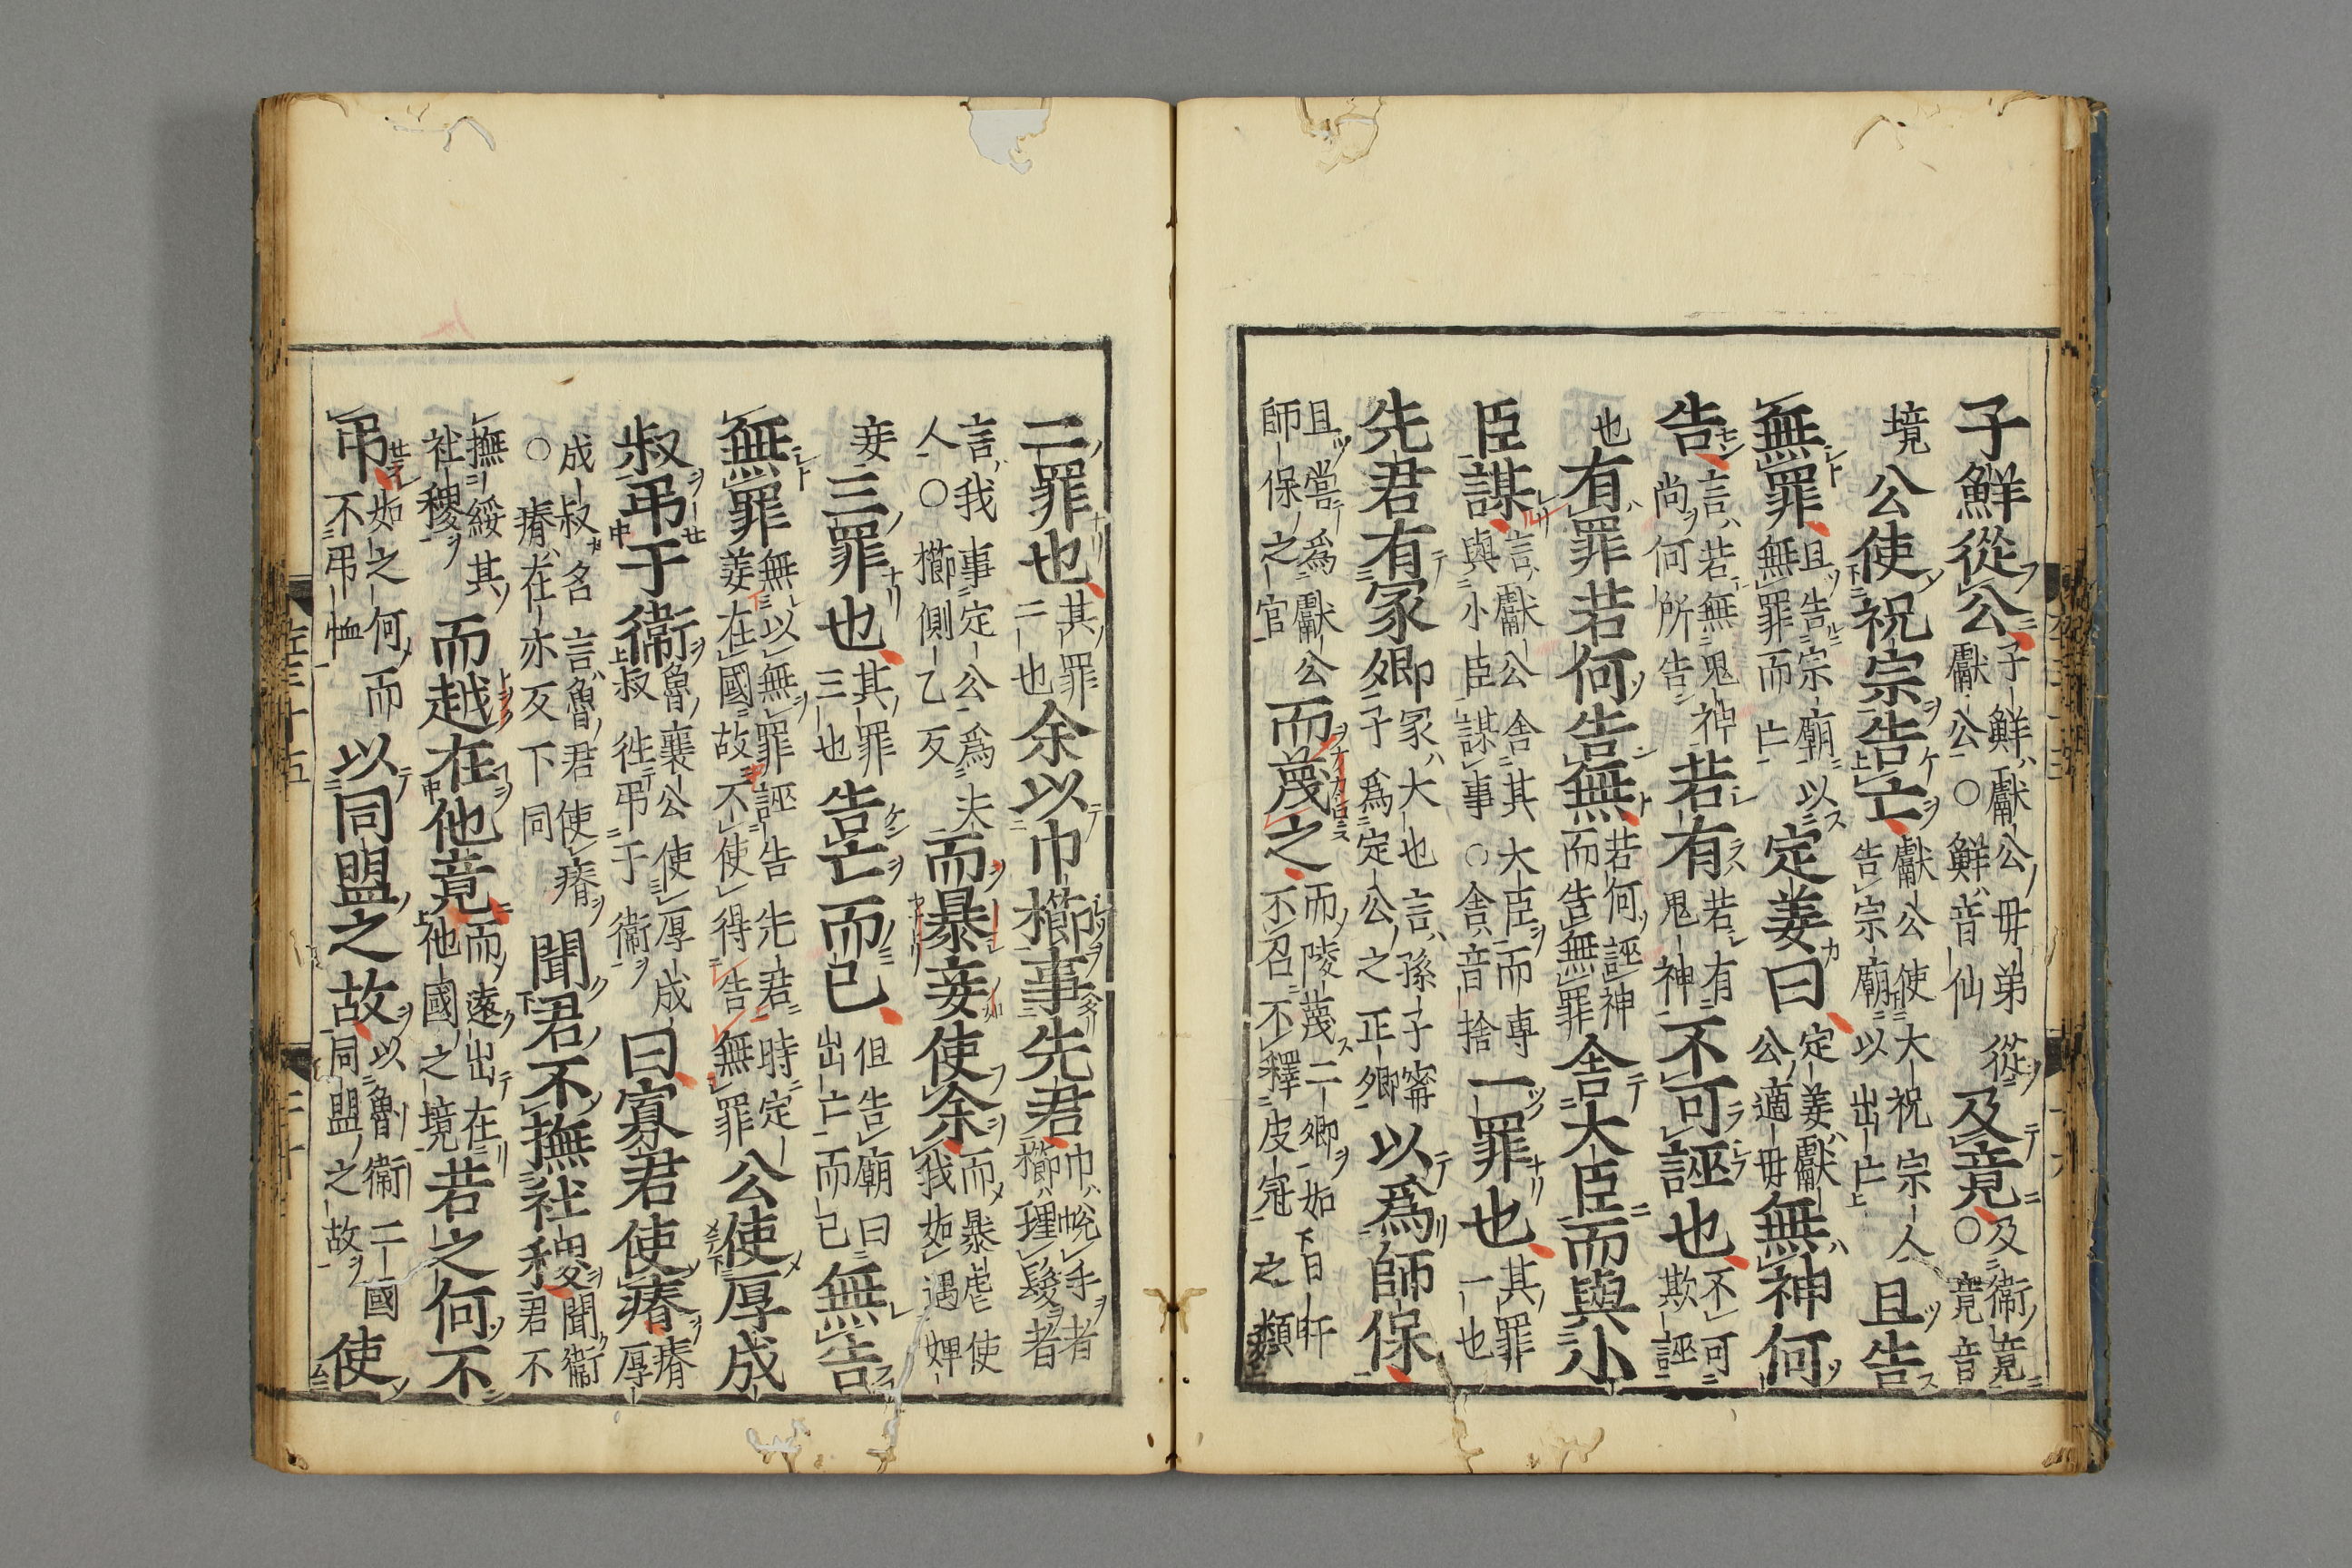 子鮮從公子鮮獻公毋弟從獻公○鮮音仙及竟及衞竟○竟音
境公使祝宗告亡獻公使大祝宗人告宗廟以出亡且告
無罪且告宗廟以無罪而亡定姜曰定姜獻公適毋無神何
告言若無鬼神尚何所告若有若有鬼神不可誣也不可欺誣
也有罪若何告無若何誣神而告無罪舍大臣而與小
臣謀言獻公舍其大臣而專與小臣謀事○舍音捨一罪也其罪一也
先君有冢卿冢大也言孫子甯子爲定公之正卿以爲師保
且嘗爲獻公師保之官而蔑之而陵蔑二卿如下日旰不召不釋皮冠之類
二罪也其罪二也余以巾櫛事先君巾帨手者櫛理髮者
言我事定公爲夫人○櫛側乙反而暴妾使余而暴虐使我如遇婢
妾三罪也其罪三也告亡而已但告廟曰出亡而已無告
無罪無以無罪誣告先君時定姜在國故不使得告無罪公使厚成
叔弔于衞魯襄公使厚成叔徃弔于衞曰寡君使瘠瘠厚
成叔名言魯君使瘠○瘠在亦反下同聞君不撫社稷聞衞君不
撫綏其社稷而越在他竟而遠出在他國之境若之何不
弔如之何而不弔恤以同盟之故以魯衞二國同盟之故使